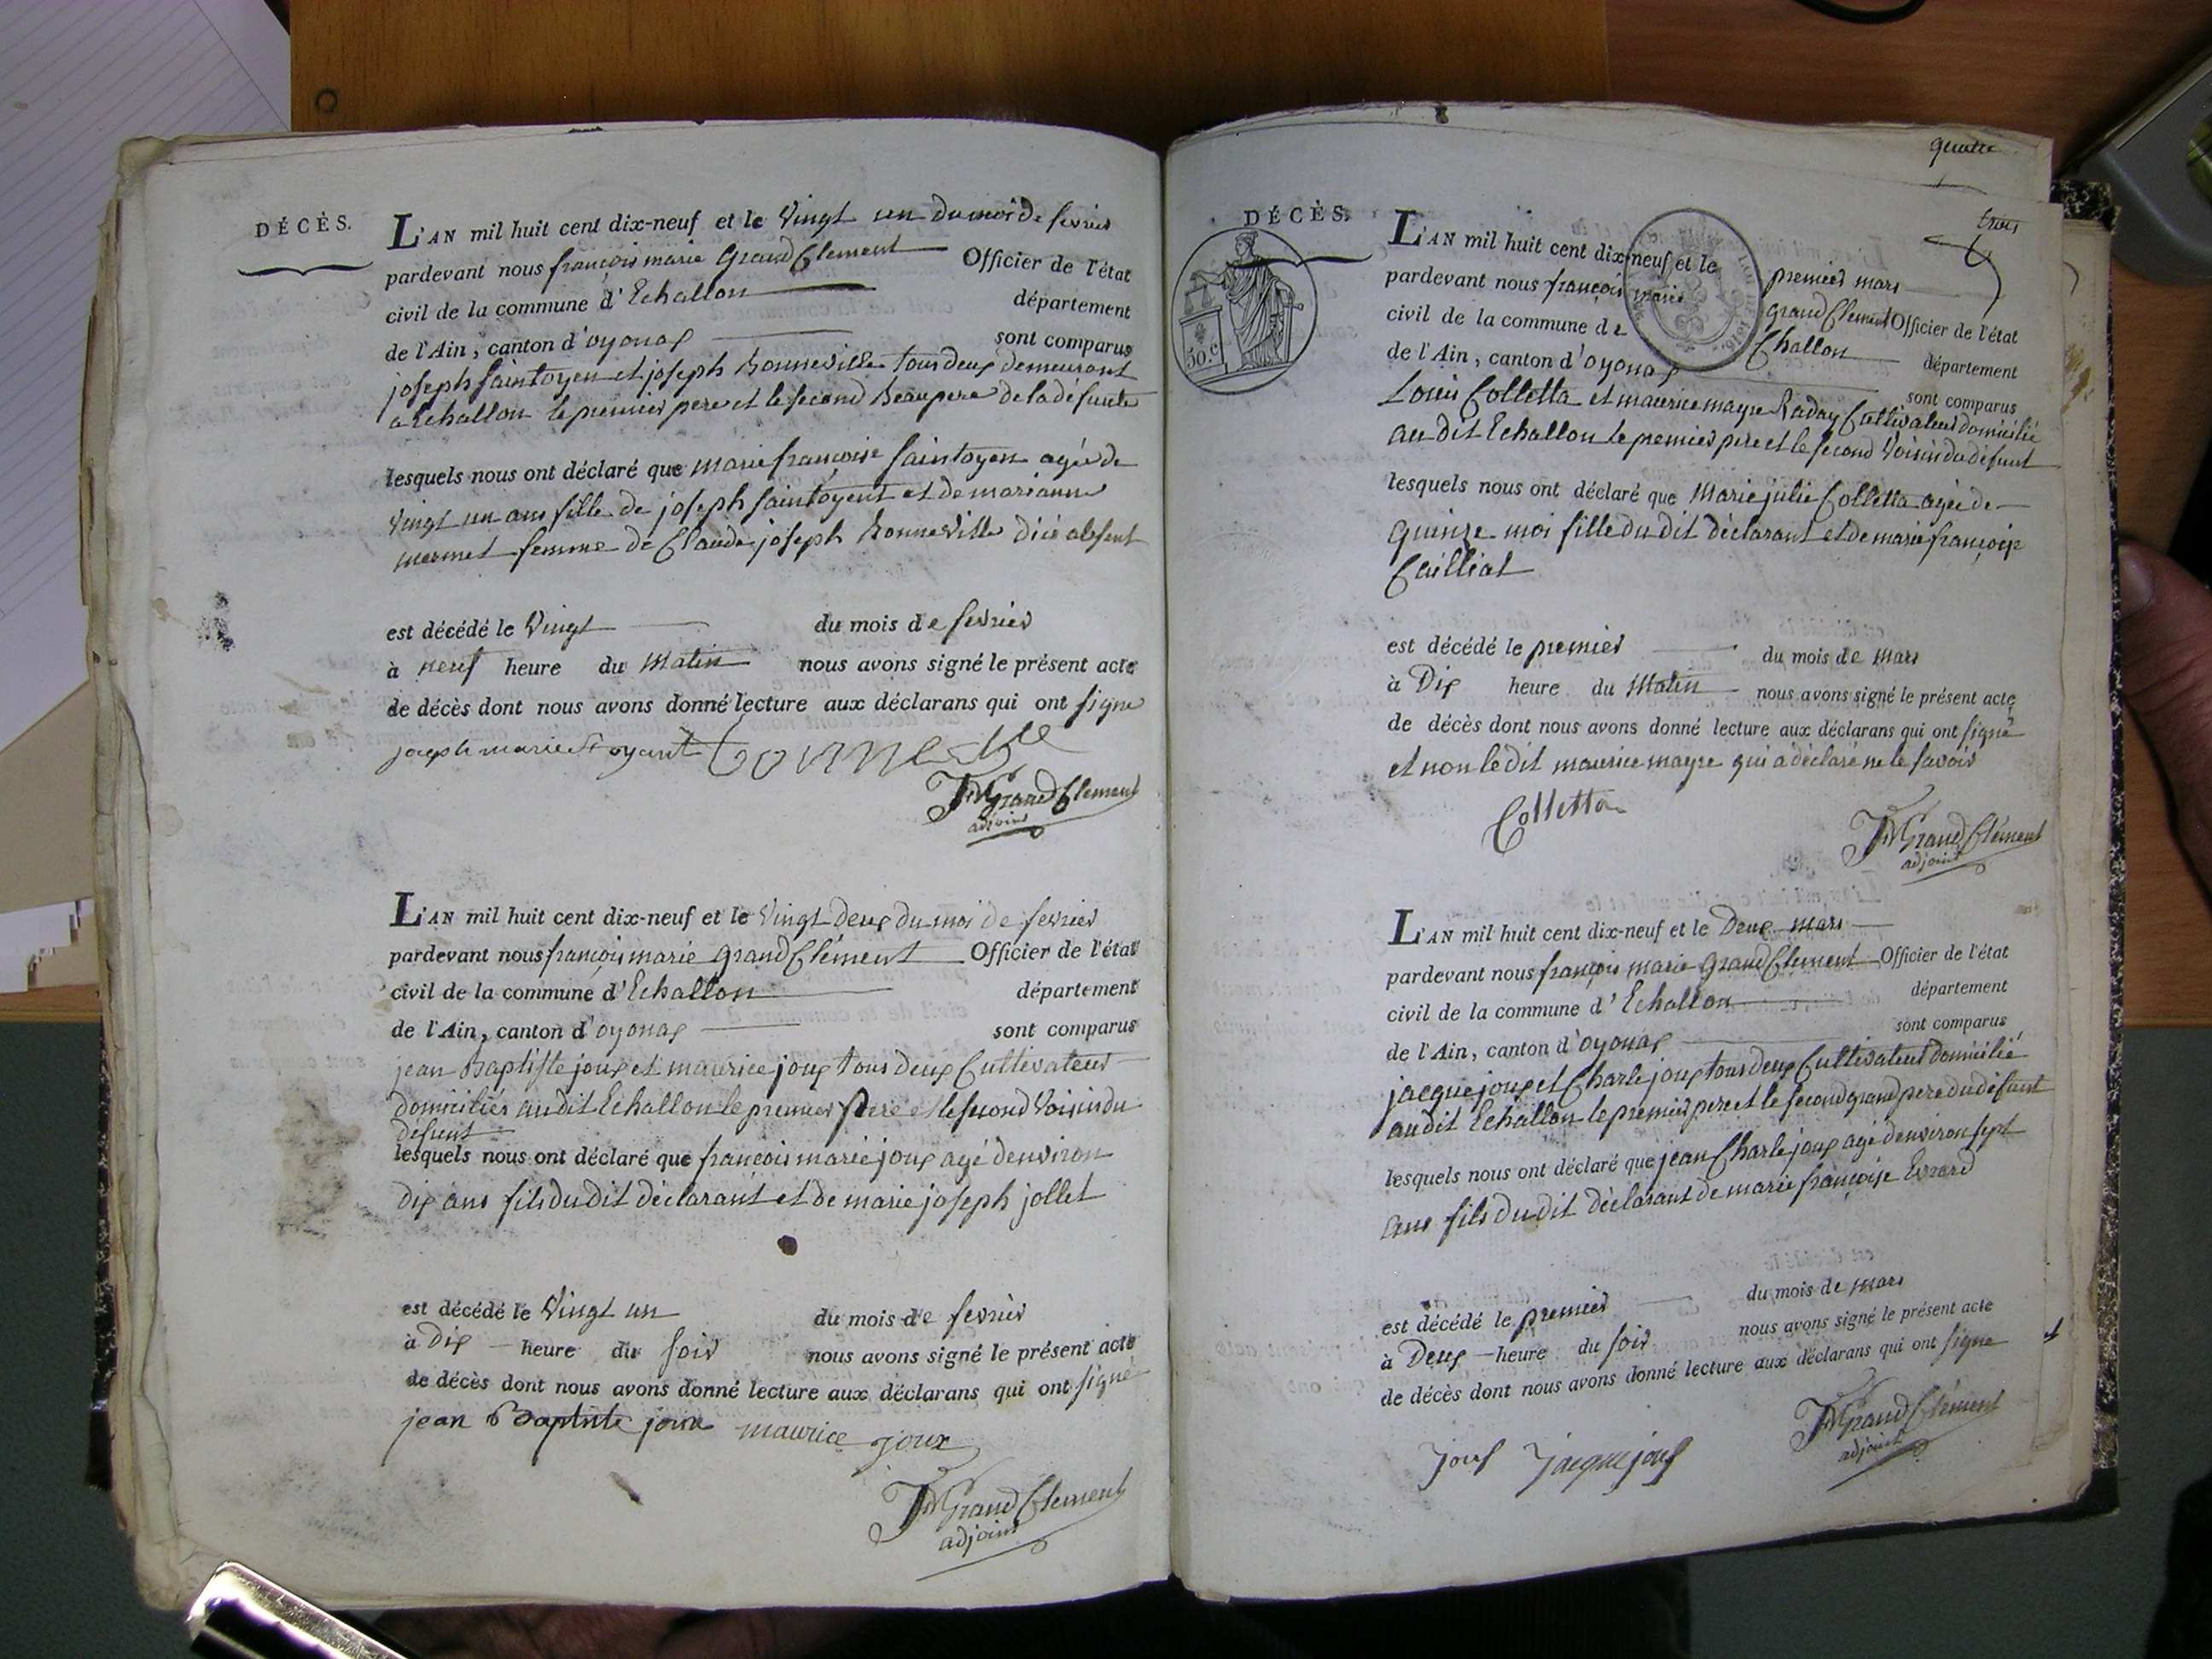 DÉCÈS.
L'AN mil huit cent dix-neuf et le Vingt un du moi de fevrier
pardevant nous françois marie Grand Clement Officier de l'état
civil de la commune d'Echallon département
de l'Ain, canton d'oyonax sont comparus
joseph saintoyen et joseph Bonneville tous deux demeurant
a Echallon le premier pere et le second Beaupere de la défunte
lesquels nous ont déclaré que marie françoise saintoyen agée de
vingt un ans fille de joseph saintoyent et de marianne
mermet femme de Claude joseph Bonneville absent
est décédé le Vingt du mois de fevrier
à neuf heure du Matin nous avons signé le présent acte
de décès dont nous avons donné lecture aux déclarans qui ont signé
joseph marie St oyant
FM Grand Clement
adjoint
L'AN mil huit cent dix-neuf et le Vingt deux du moi de fevrier
pardevant nous françois marie Grand Clément Officier de l'état
civil de la commune d'Echallon département
de l'Ain, canton d'oyonax sont comparus
jean Baptiste joux et maurice joux tous deux Cultivateur
domiciliés audit Echallon le premier pere et le second Voisin du
défunt
lesquels nous ont déclaré que françois marie joux agé d'environ
dix ans fils du dit déclarant et de marie joseph jollet
est décédé le Vingt un du mois de fevrier
à Dix heure du soir nous avons signé le présent acte
de décès dont nous avons donné lecture aux déclarans qui ont signé
jean Baptiste joux maurice joux
FM Grand Clement
adjoint
quatre
trois
DÉCÈS.
30.c
L'AN mil huit cent dix-neuf et le premier mars
pardevant nous françois marie grand Clement Officier de l'état
civil de la commune de Challon département
de l'Ain, canton d'oyonax sont comparus
Louis Colletta et maurice mayre Raday Cultivateur domicilié
au dit Echallon le premier pere et le second Voisin du défunt
lesquels nous ont déclaré que Marie julie Colletta agée de
quinze moi fille du dit déclarant et de marie françoise
Cailliat
est décédé le premier du mois de mars
à Dix heure du Matin nous avons signé le présent acte
de décès dont nous avons donné lecture aux déclarans qui ont signé
et non le dit maurice mayre qui a déclaré ne le savoir
Colletta
FM Grand Clément
adjoint
L'AN mil huit cent dix-neuf et le Deux mars
pardevant nous françois marie Grand Clement Officier de l'état
civil de la commune d'Echallon département
de l'Ain, canton d'oyonax sont comparus
jacque joux et Charle joux tous deux Cultivateur domicilié
audit Echallon le premier pere et le second grand pere du défunt
lesquels nous ont déclaré que jean Charle joux agé d'environ sept
ans fils du dit déclarant de marie françoise Evrard
est décédé le premier du mois de mars
à Deux heure du soir nous avons signé le présent acte
de décès dont nous avons donné lecture aux déclarans qui ont signé
joux jacque joux
FM Grand Clément
adjoint